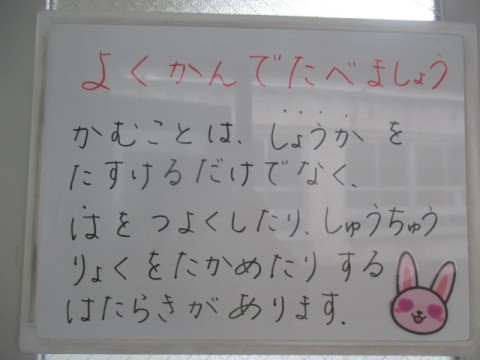 よくかんでたべましょう
かむことは、しょうかを
たすけるだけでなく、
はをつよくしたり、しゅうちゅう
りょくをたかめたりする
はたらきがあります.